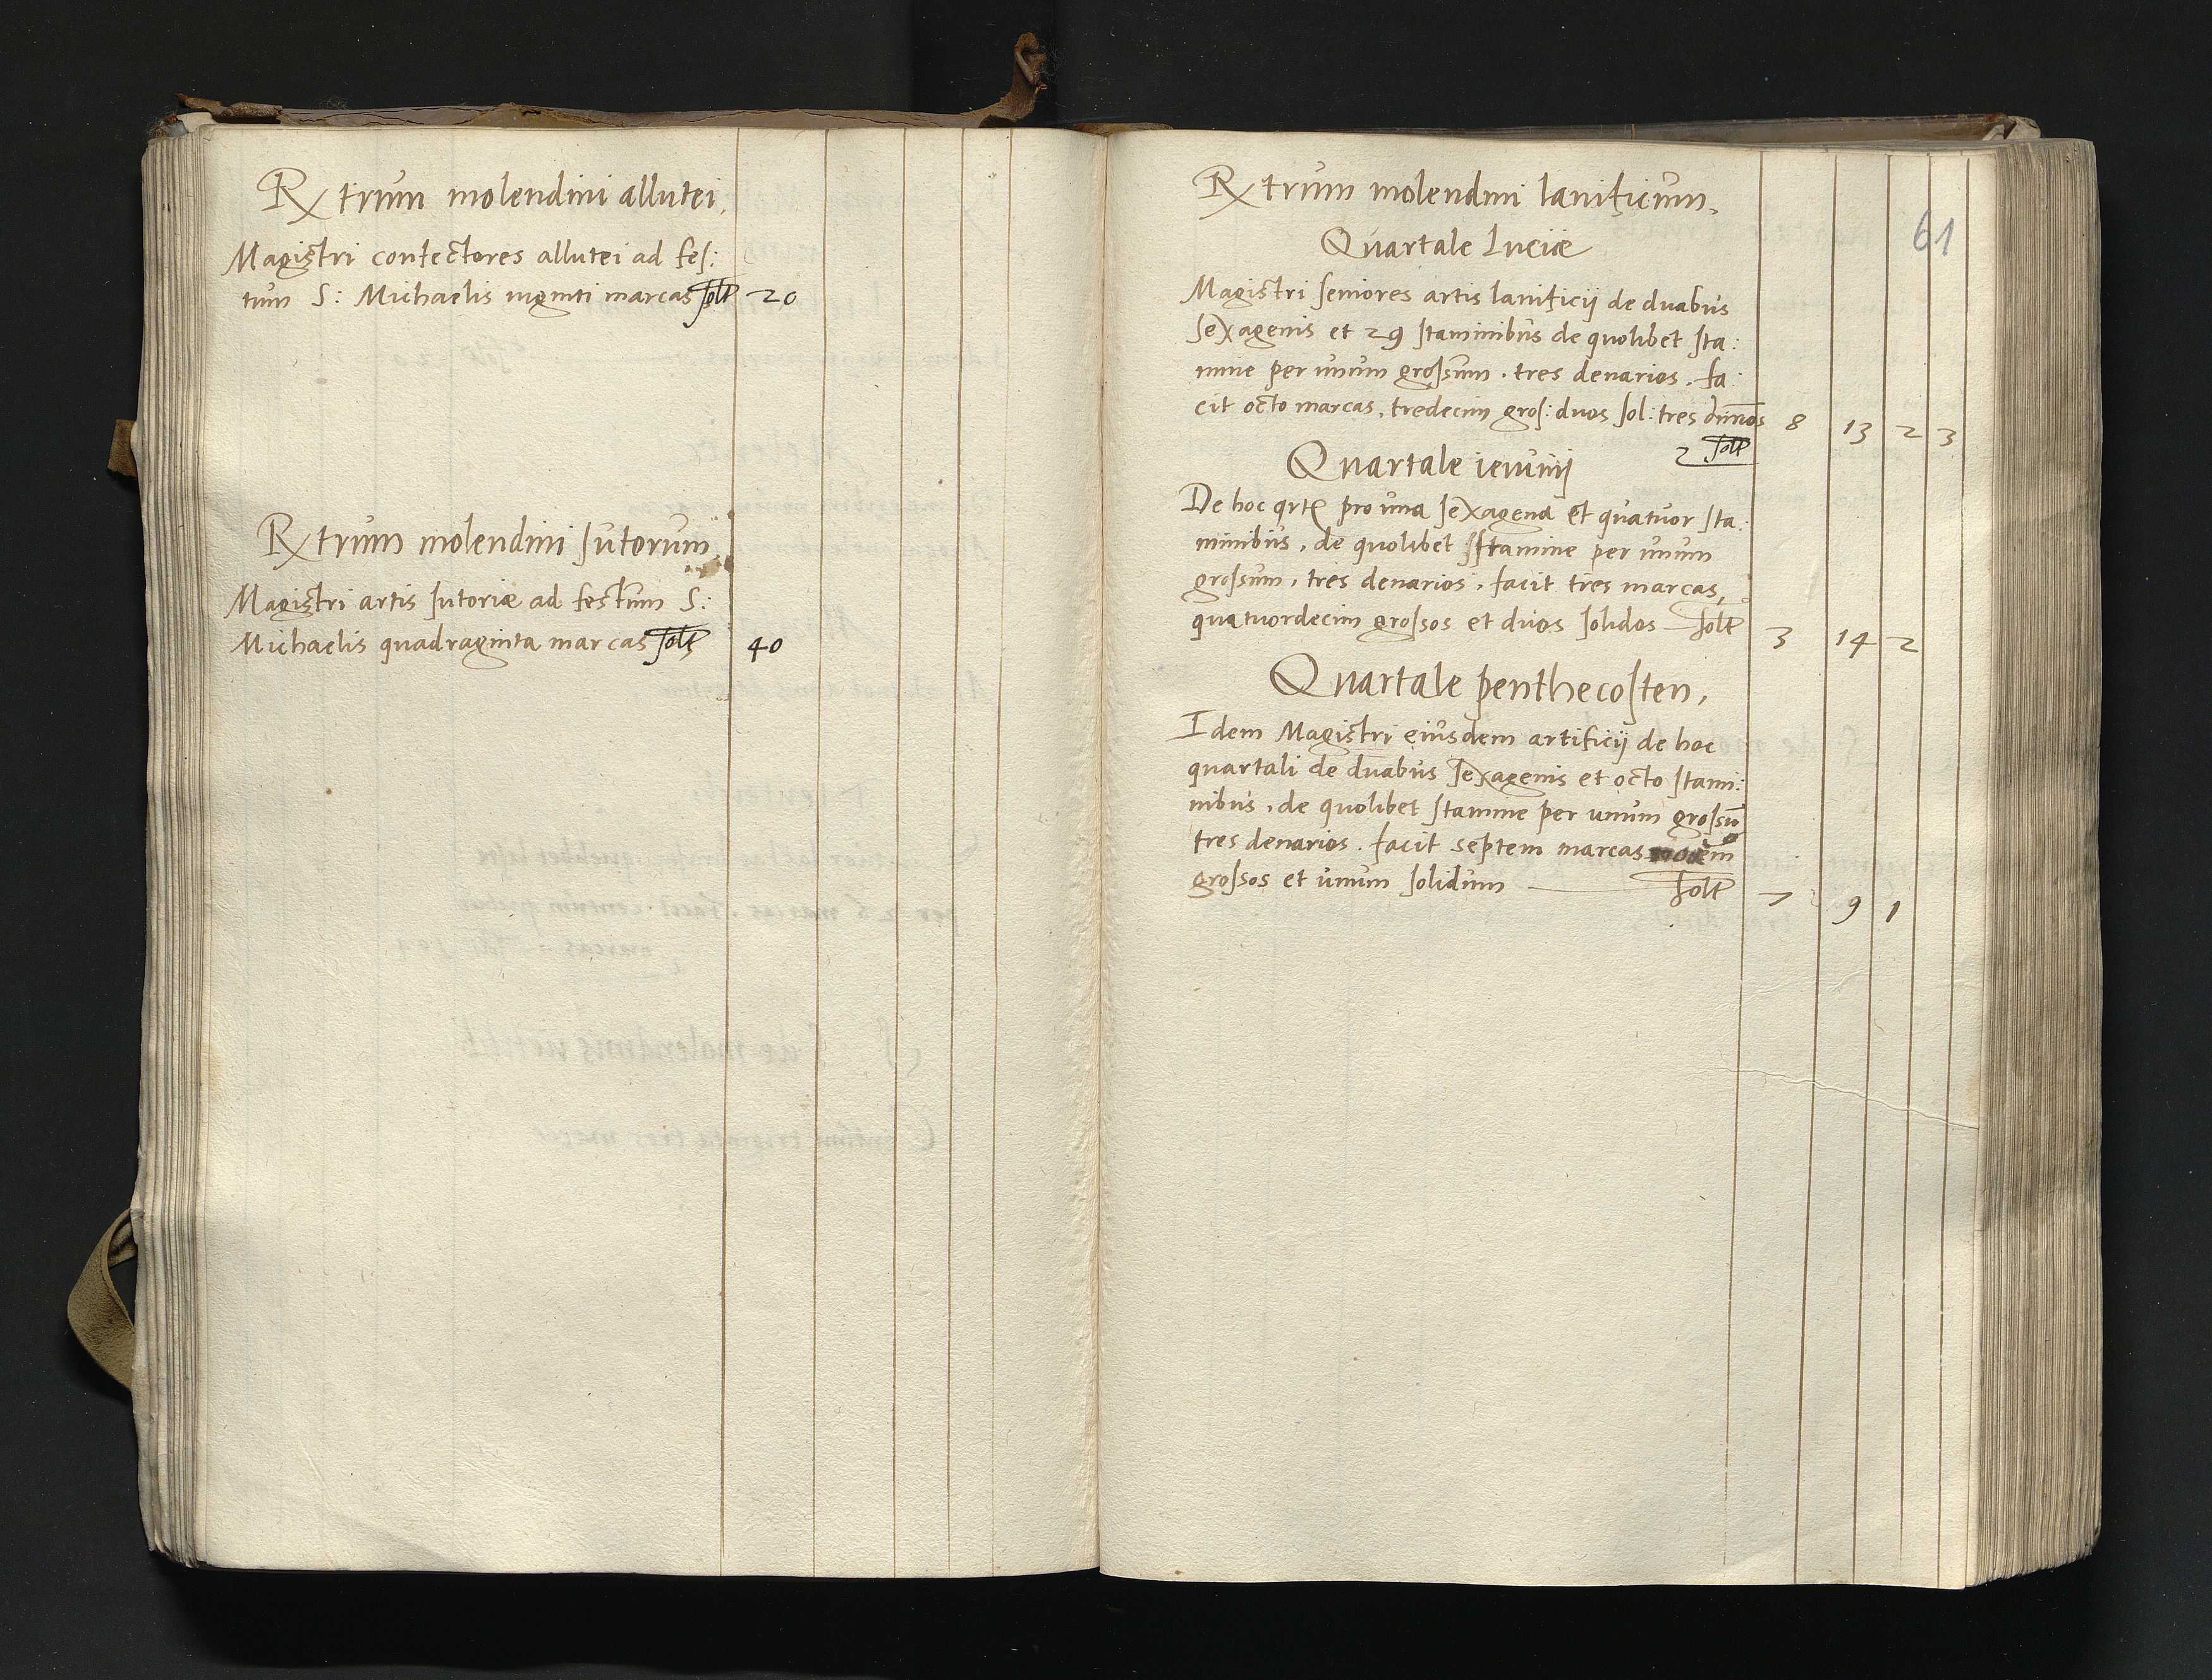 Rx trum molendini allutei.
Magistri confectores allutei ad fes:
tum S: Michaelis viginti marcas solt 20
Rx trum molendini sutorum.
Magistri artis sutoriæ ad festum S:
Michaelis quadraginta marcas solt 40
61
Rx trum molendini lanificum.
Quartale Luciæ
Magistri seniores artis lanificij de duabus
sexagenis et 29 staminibus de quolibet sta:
mine per unum grossum. tres denarios. fa:
cit octo marcas, tredecim gros: duos sol: tres dinnos 8 13 2 3
solt
Quartale ieiunij
De hoc qrtl pro una sexagena et quatuor sta:
minibus, de quolibet stamine per unum
grossum, tres denarios, facit tres marcas,
quatuordecim grossos et duos solidos solt 3 14 2
Quartale penthecosten,
Idem Magistri eiusdem artificij de hoc
quartali de duabus sexagenis et octo stami:
nibus, de quolibet stamine per unum grossū
tres denarios. facit septem marcas novem
grossos et unum solidum solt 7 9 1